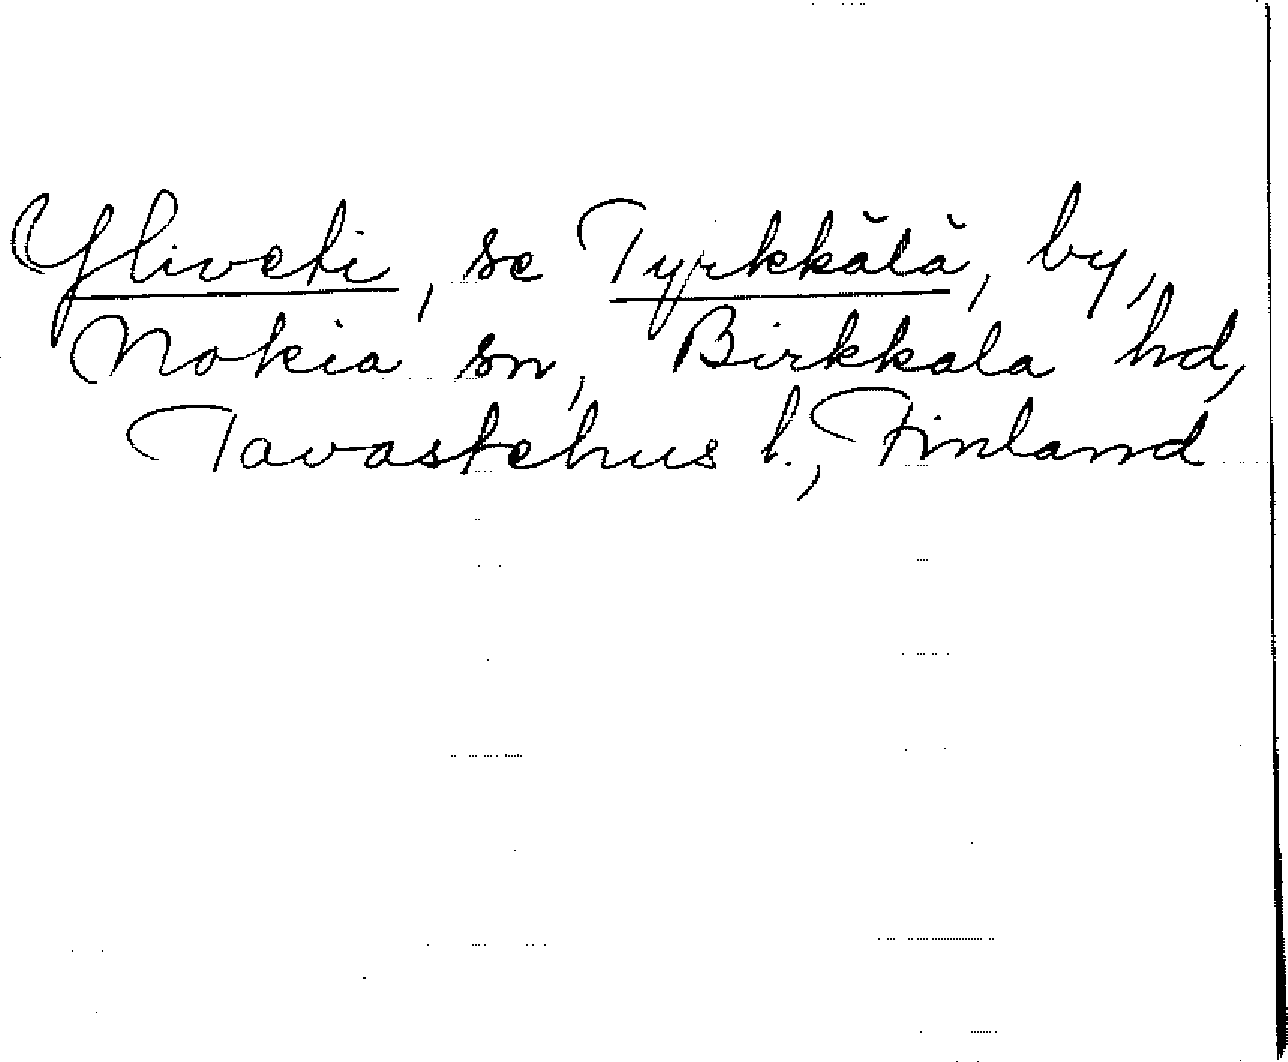 Yliveti, se Tyrkkälä, by,
Nokia sn, Birkkala hd,
Tavastehus l., Finland